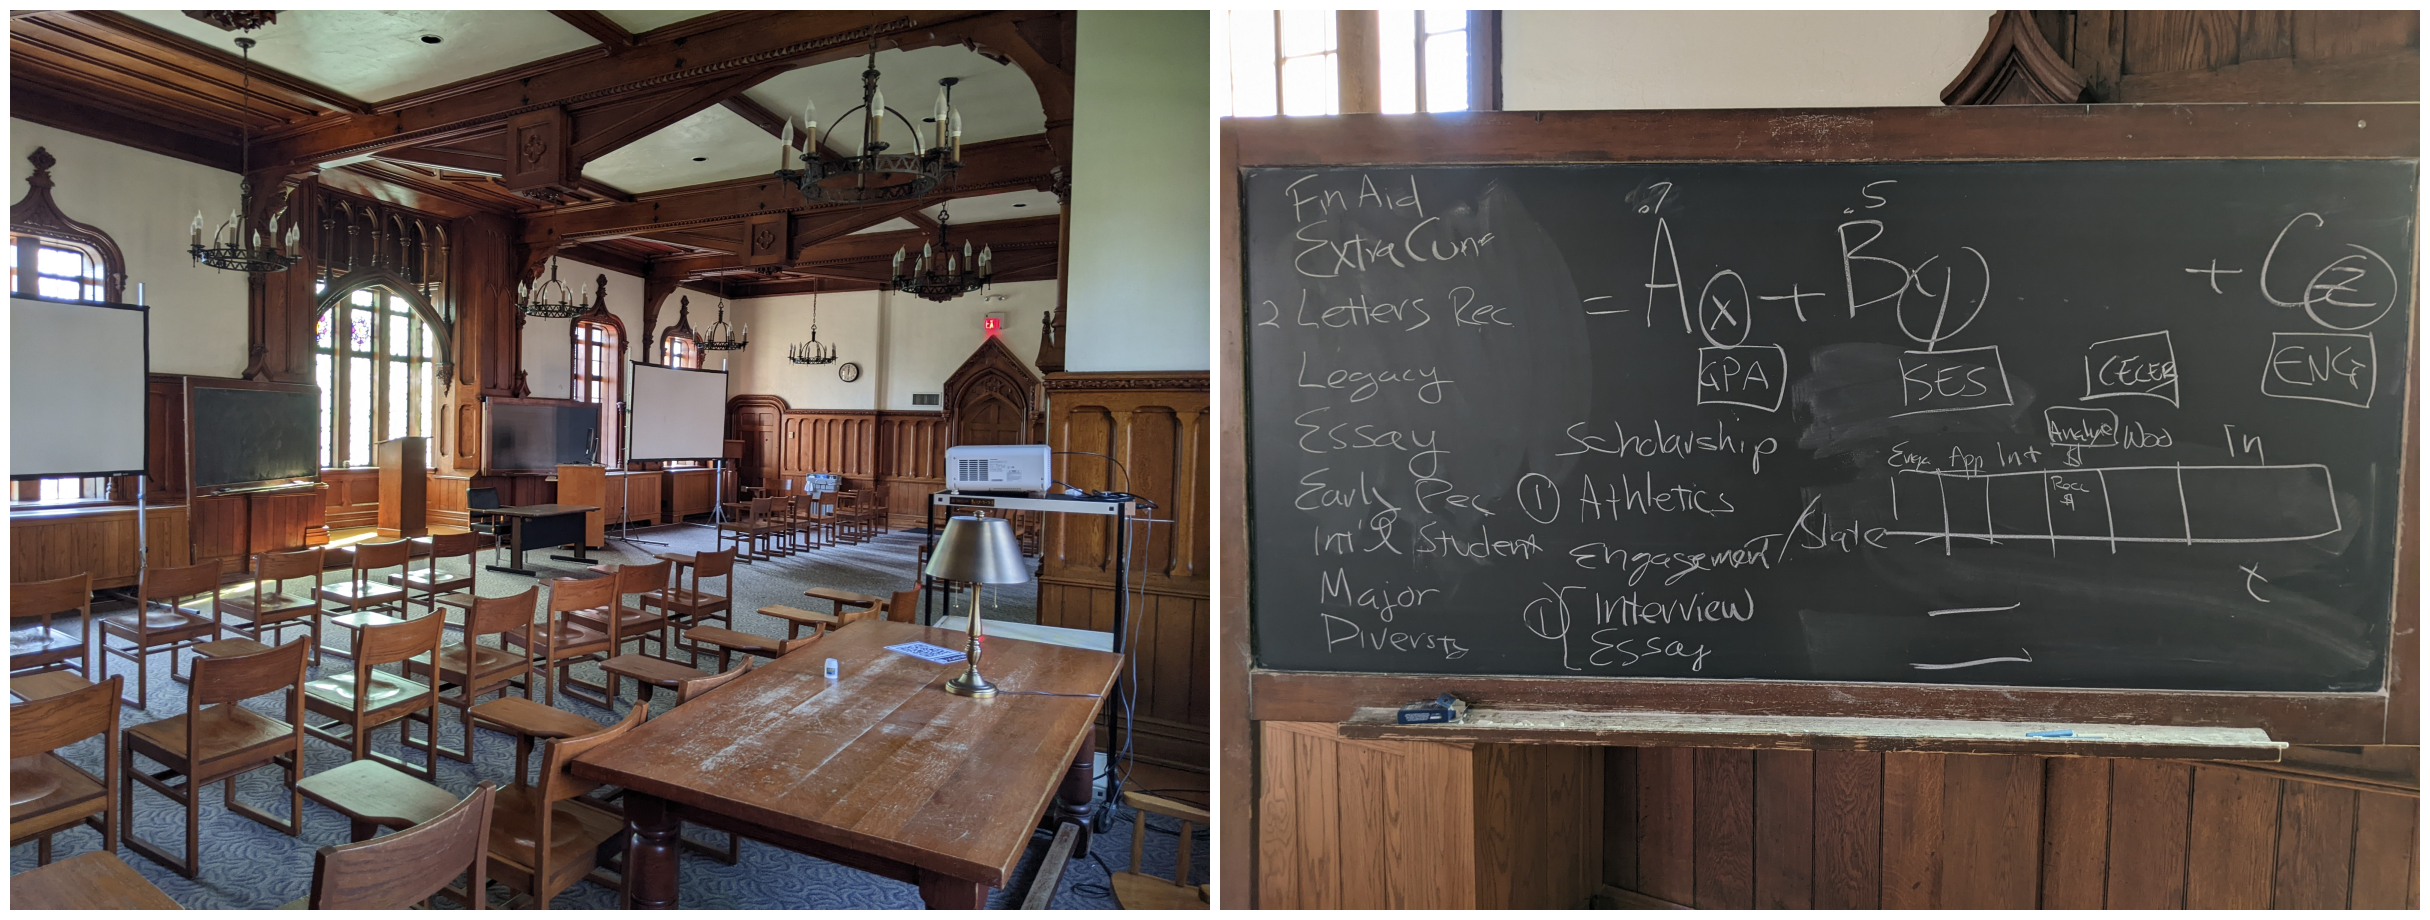 Fin Aid
Extra Curr
2 Letters Rec.
Legacy
Essay
Early Dec
Int'l Student
Major
Diversty
.7 .5
= A x + B y + C z
GPA
SES
ENG
Scholarship
① Athletics
Engagement / Slate
① Interview
Essay
App Int
Analyze
In
t